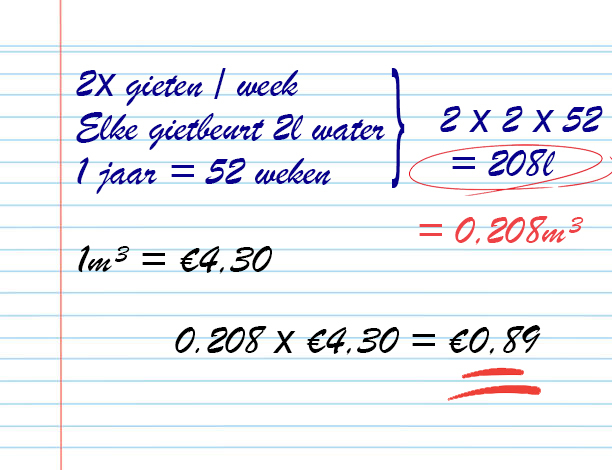 2x gieten / week
Elke gietbeurt 2l water
1 jaar = 52 weken
2 x 2 x 52
= 208l
= 0.208m³
1m³ = €4.30
0.208 x €4.30 = €0.89